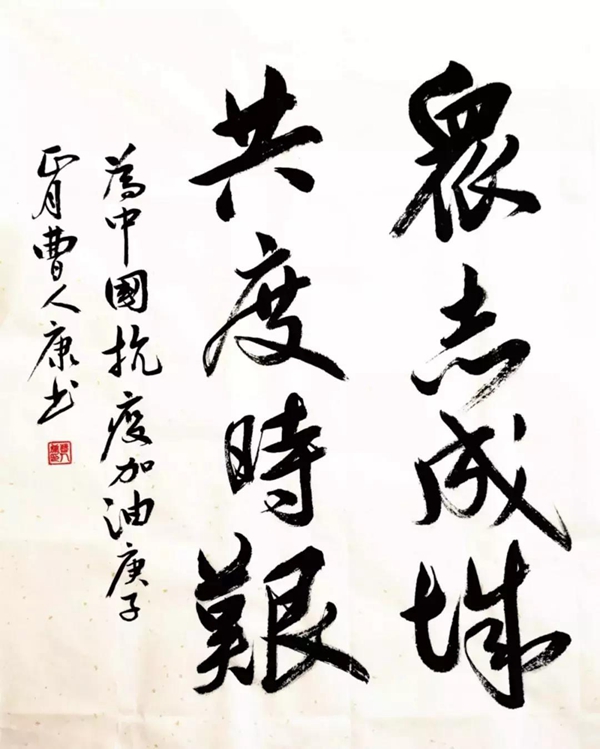 眾志成城
共度時艱
為中國抗疫加油庚子
正月曹人康书